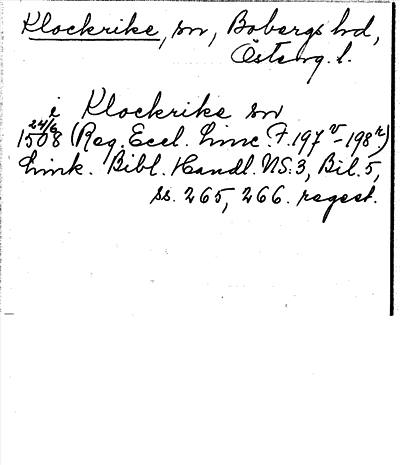 Klockrike, sn, Bobergs hd,
Österg. l.
i Klockrike sn
24/6
1508 (Reg. Eccl. Linc. F. 197v-198r)
Link. Bibl. Handl. NS. 3, Bil. 5,
ss. 265, 266. regest.